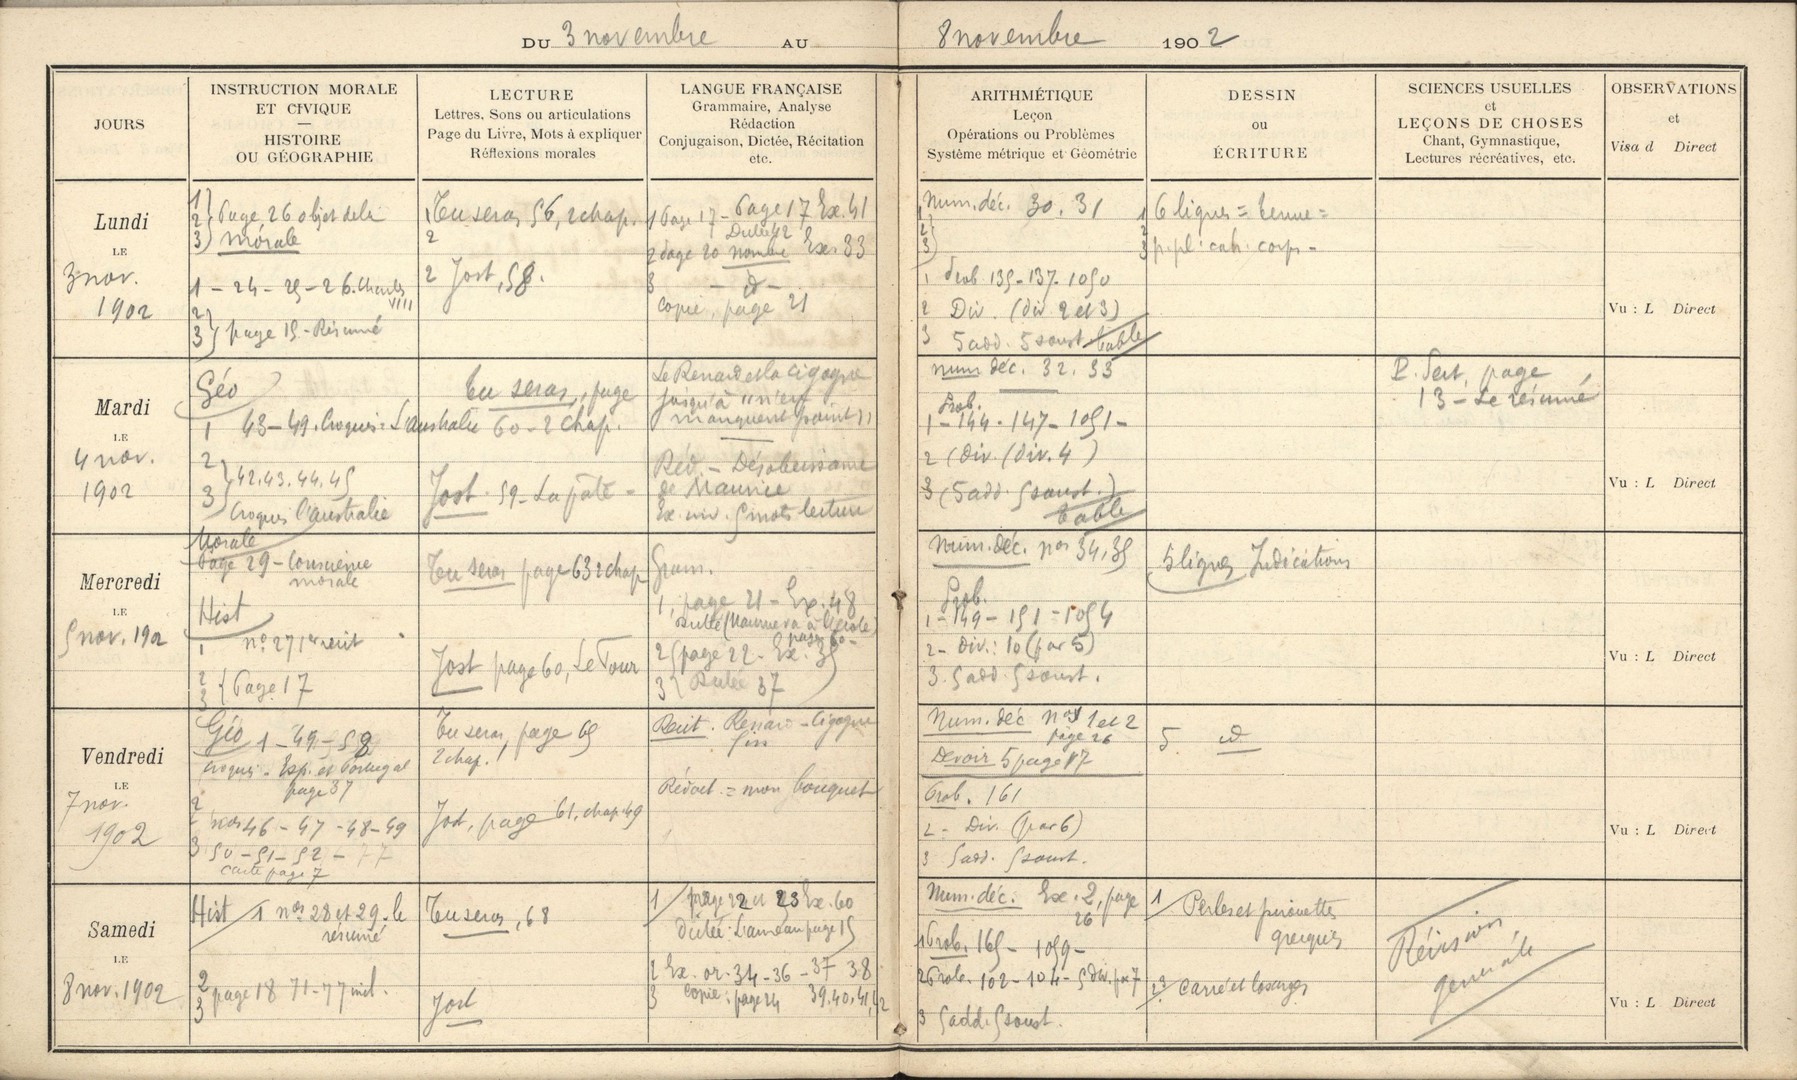 DU 3 novembre AU 8 novembre 1902
JOURS
INSTRUCTION MORALE
ET CIVIQUE
HISTOIRE
OU GÉOGRAPHIE
LECTURE
Lettres, Sons ou articulations
Page du Livre, Mots à expliquer
Réflexions morales
LANGUE FRANÇAISE
Grammaire, Analyse
Rédaction
Conjugaison, Dictée, Récitation
etc.
ARITHMÉTIQUE
Leçon
Opérations ou Problèmes
Système métrique et Géométrie
DESSIN
ou
ÉCRITURE
SCIENCES USUELLES
et
LEÇONS DE CHOSES
Chant, Gymnastique,
Lectures récréatives, etc.
OBSERVATIONS
et
Visa d Direct
Lundi
LE
3 nov.
1902
1
2 Page 26 objet de la
3 morale
1 - 24 - 25 - 26. Charles VIII
2
3 page 15 - Résumé
Tu seras 56, 2 chap.
2
2 Jost, 58.
1 Page 17 - Page 17 Ex. 41
Dictée 42
2 page 20 nombre Ex. 33
3 - d -
copie, page 21
Num. déc. 30. 31
1
2
3
1 Prob. 135 - 137 - 1050
2 Div. (div 2 et 3)
3 5 add. 5 soust. table
1 6 lignes =
2
3 p. pl. cah. corps -
Vu : L Direct
Mardi
LE
4 nov.
1902
Géo
1 48 - 49. Croquis = L'Australie
2
3 42. 43. 44. 45
Croquis l'Australie
Tu seras, page
60 - 2 chap.
Jost. 59 - La pâte -
Le Renard et la Cigogne
jusqu'à "n'en
manquent point"
Réd. - Désobéissance
de Maurice
Ex. inv. 5 mots lecture
num déc. 32. 33
Prob.
1 - 144 - 147 - 1051 -
2 (Div. (div. 4)
3 (5 add. 5 soust.)
table
page
13 - Le résumé
Vu : L Direct
Mercredi
LE
5 nov. 190
Morale
Page 29 - Conscience
morale
Hist
1 no 27 1er récit
2
3 Page 17
Tu seras page 63 2 chap
Jost page 60, Le Tour
Gram.
1, page 21 - Ex. 48
Dictée (Maurice va à l'école)
page 60 -
2 page 22 - Ex. 35
3 Dictée 37
Num. déc. nos 34, 35
Prob.
1 - 149 - 151 - 1054
2 - Div. : 10 (par 5)
3. 5 add 5 soust.
5 lignes Indications
Vu : L Direct
Vendredi
LE
7 nov.
1902
Géo 1 - 49 - 58
croquis - Esp. et Portugal
page 37
2 nos 46 - 47 - 48 - 49
3 50 - 51 - 52 - 77
Carte page 7
Tu seras, page 65
2 chap.
Jost, page 61, chap. 49
Récit. Renard - Cigogne
fin
Rédact. = mon bouquet
Num. déc nos 1 et 2
page 26
Devoir 5 page 17
Prob. 161
2 - Div. (par 6)
3 5 add. 5 soust.
5 d
Vu : L Direct
Samedi
LE
8 nov. 1902
Hist 1 nos 28 et 29 - le
résumé
2
3 page 18 71 - 77 incl.
Tu seras, 68
Jost
1 page 22 et 23 Ex. 60
Dictée: page 15
2 Ex. or. 34 - 36 - 37 38
3 copie: page 24 39. 40. 41, 42
Num. déc. Ex. 2, page
26
1 Prob. 165 - 1059 -
2 Prob. 102 - 104 - 5 div. par 7
3 5 add. 5 soust.
1 Perles et pirouettes
grecques
2 3 Carré et losanges
Révision
générale
Vu : L Direct